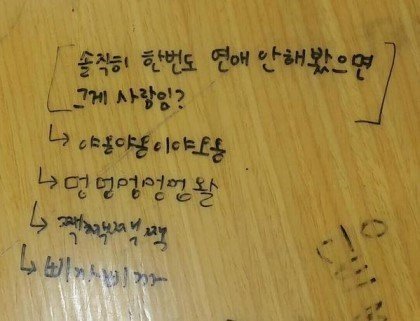 [솔직히 한번도 연애 안해봤으면
그게 사람임?]
↳ 야옹야옹이야오옹
↳ 멍멍멍멍멍왈
↳ 짹짹짹짹
↳ 삐까삐까